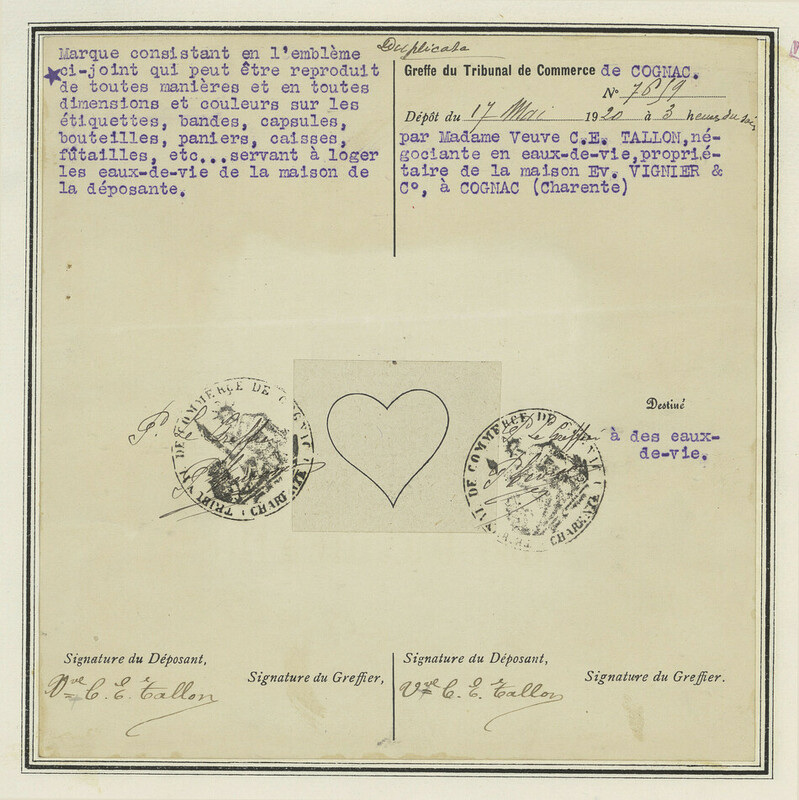 Duplicata
Marque consistant en l'emblème
ci-joint qui peut être reproduit
de toutes manières et en toutes
dimensions et couleurs sur les
étiquettes, bandes, capsules,
bouteilles, paniers, caisses,
fûtailles, etc...servant à loger
les eaux-de-vie de la maison de
la déposante.
Greffe du Tribunal de Commerce de COGNAC.
N° 7659
Dépôt du 17 Mai 1920 à 3 heures du soir
par Madame Veuve C.E. TALLON, né-
gociante en eaux-de-vie, proprié-
taire de la maison Ev. VIGNIER &
C°, à COGNAC (Charente)
TRIBUNAL DE COMMERCE DE COGNAC
(CHARENTE)
P. Le Greffier
TRIBUNAL DE COMMERCE DE COGNAC
(CHARENTE)
P. Le Greffier
Destiné
à des eaux-
de-vie.
Signature du Déposant,
Signature du Greffier,
Vve C. E. Tallon
Signature du Déposant,
Signature du Greffier.
Vve C. E. Tallon